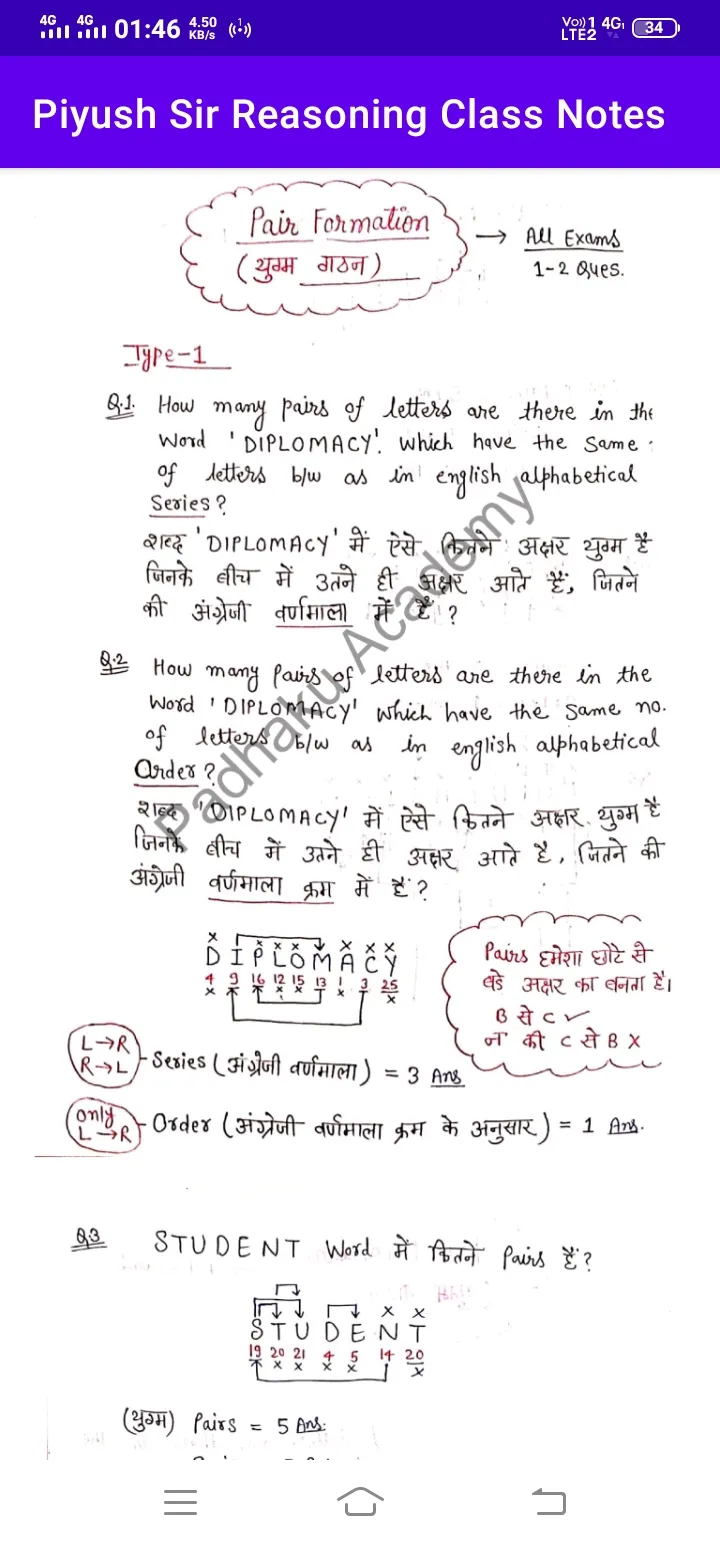 4G 4G 01:46 4.50 KB/s Vo)) 1 4G LTE2 34
Piyush Sir Reasoning Class Notes
Pair Formation
(युग्म गठन)
→ All Exams
1-2 Ques.
Type-1
Q.1. How many pairs of letters are there in the
Word 'DIPLOMACY'. which have the same
of letters b/w as in english alphabetical
Series?
शब्द 'DIPLOMACY' में ऐसे कितने अक्षर युग्म है
जिनके बीच में उतने ही अक्षर आते हैं, जितने
की अंग्रेजी वर्णमाला में हैं ?
Q.2 How many pairs of letters are there in the
Word 'DIPLOMACY' which have the same no.
of letters b/w as in english alphabetical
Order?
शब्द 'DIPLOMACY' में ऐसे कितने अक्षर युग्म है
जिनके बीच में उतने ही अक्षर आते है, जितने की
अंग्रेजी वर्णमाला क्रम में हैं ?
Padhaku Academy
x x x x x x x x
D I P L O M A C Y
4 9 16 12 15 13 1 3 25
x x x x x
Pairs हमेशा छोटे से
बडे अक्षर का बनता है।
B से C ✓
न की C से B X
L→R
R→L
- Series (अंग्रेजी वर्णमाला) = 3 Ans
only
L→R
- Order (अंग्रेजी वर्णमाला क्रम के अनुसार) = 1 Ans.
Q.3 STUDENT Word में कितने Pairs हैं?
x x
S T U D E N T
19 20 21 4 5 14 20
x x x x x
(युग्म) Pairs = 5 Ans.